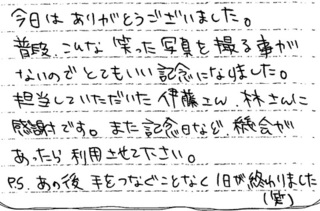 今日は ありがとうございました。
普段、こんな 笑った 写真を 撮る 事が
ないので とてもいい 記念になりました。
担当していただいた 伊藤さん、林さんに
感謝です。また 記念日など、機会が
あったら 利用させて下さい。
P.S. あの後 手をつなぐことなく 1日が終わりました
(笑)